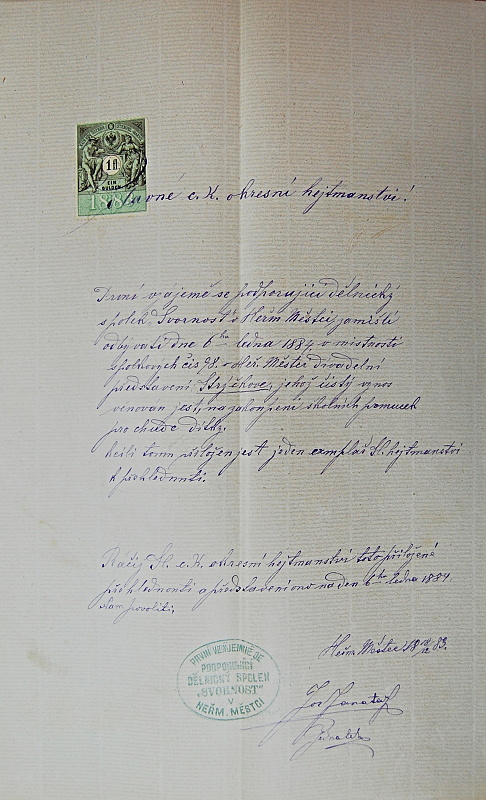 1 fl
EIN
GULDEN
188
Slavné c. k. okresní hejtmanství!
První vzájemě se podporující dělnický
spolek "Svornost" v Heřm Městci, zamíšlí
odbývati dne 6ho ledna 1884 v místnosti
spolkových čís 98. v Heř. Městci divadelní
představení Strýčkové, jehož čistý výnos
věnován jest, na zakoupení školních pomucek
pro chudé dítky.
tomu přiložen jest jeden exemplář Sl. hejtmanství
k přehlednutí.
Račiž Sl. c. k. okresní hejtmanství toto přiložené
přehlednouti a představení ono na den 6ho ledna 1884.
nám povoliti.
Heřm Městec 18 18/12 83.
PRVNI VZAJEMNĚ SE
PODPORUJÍCÍ
DĚLNICKÝ SPOLEK
„SVORNOST"
V
HEŘM. MĚSTCI
Jos
Jednatel